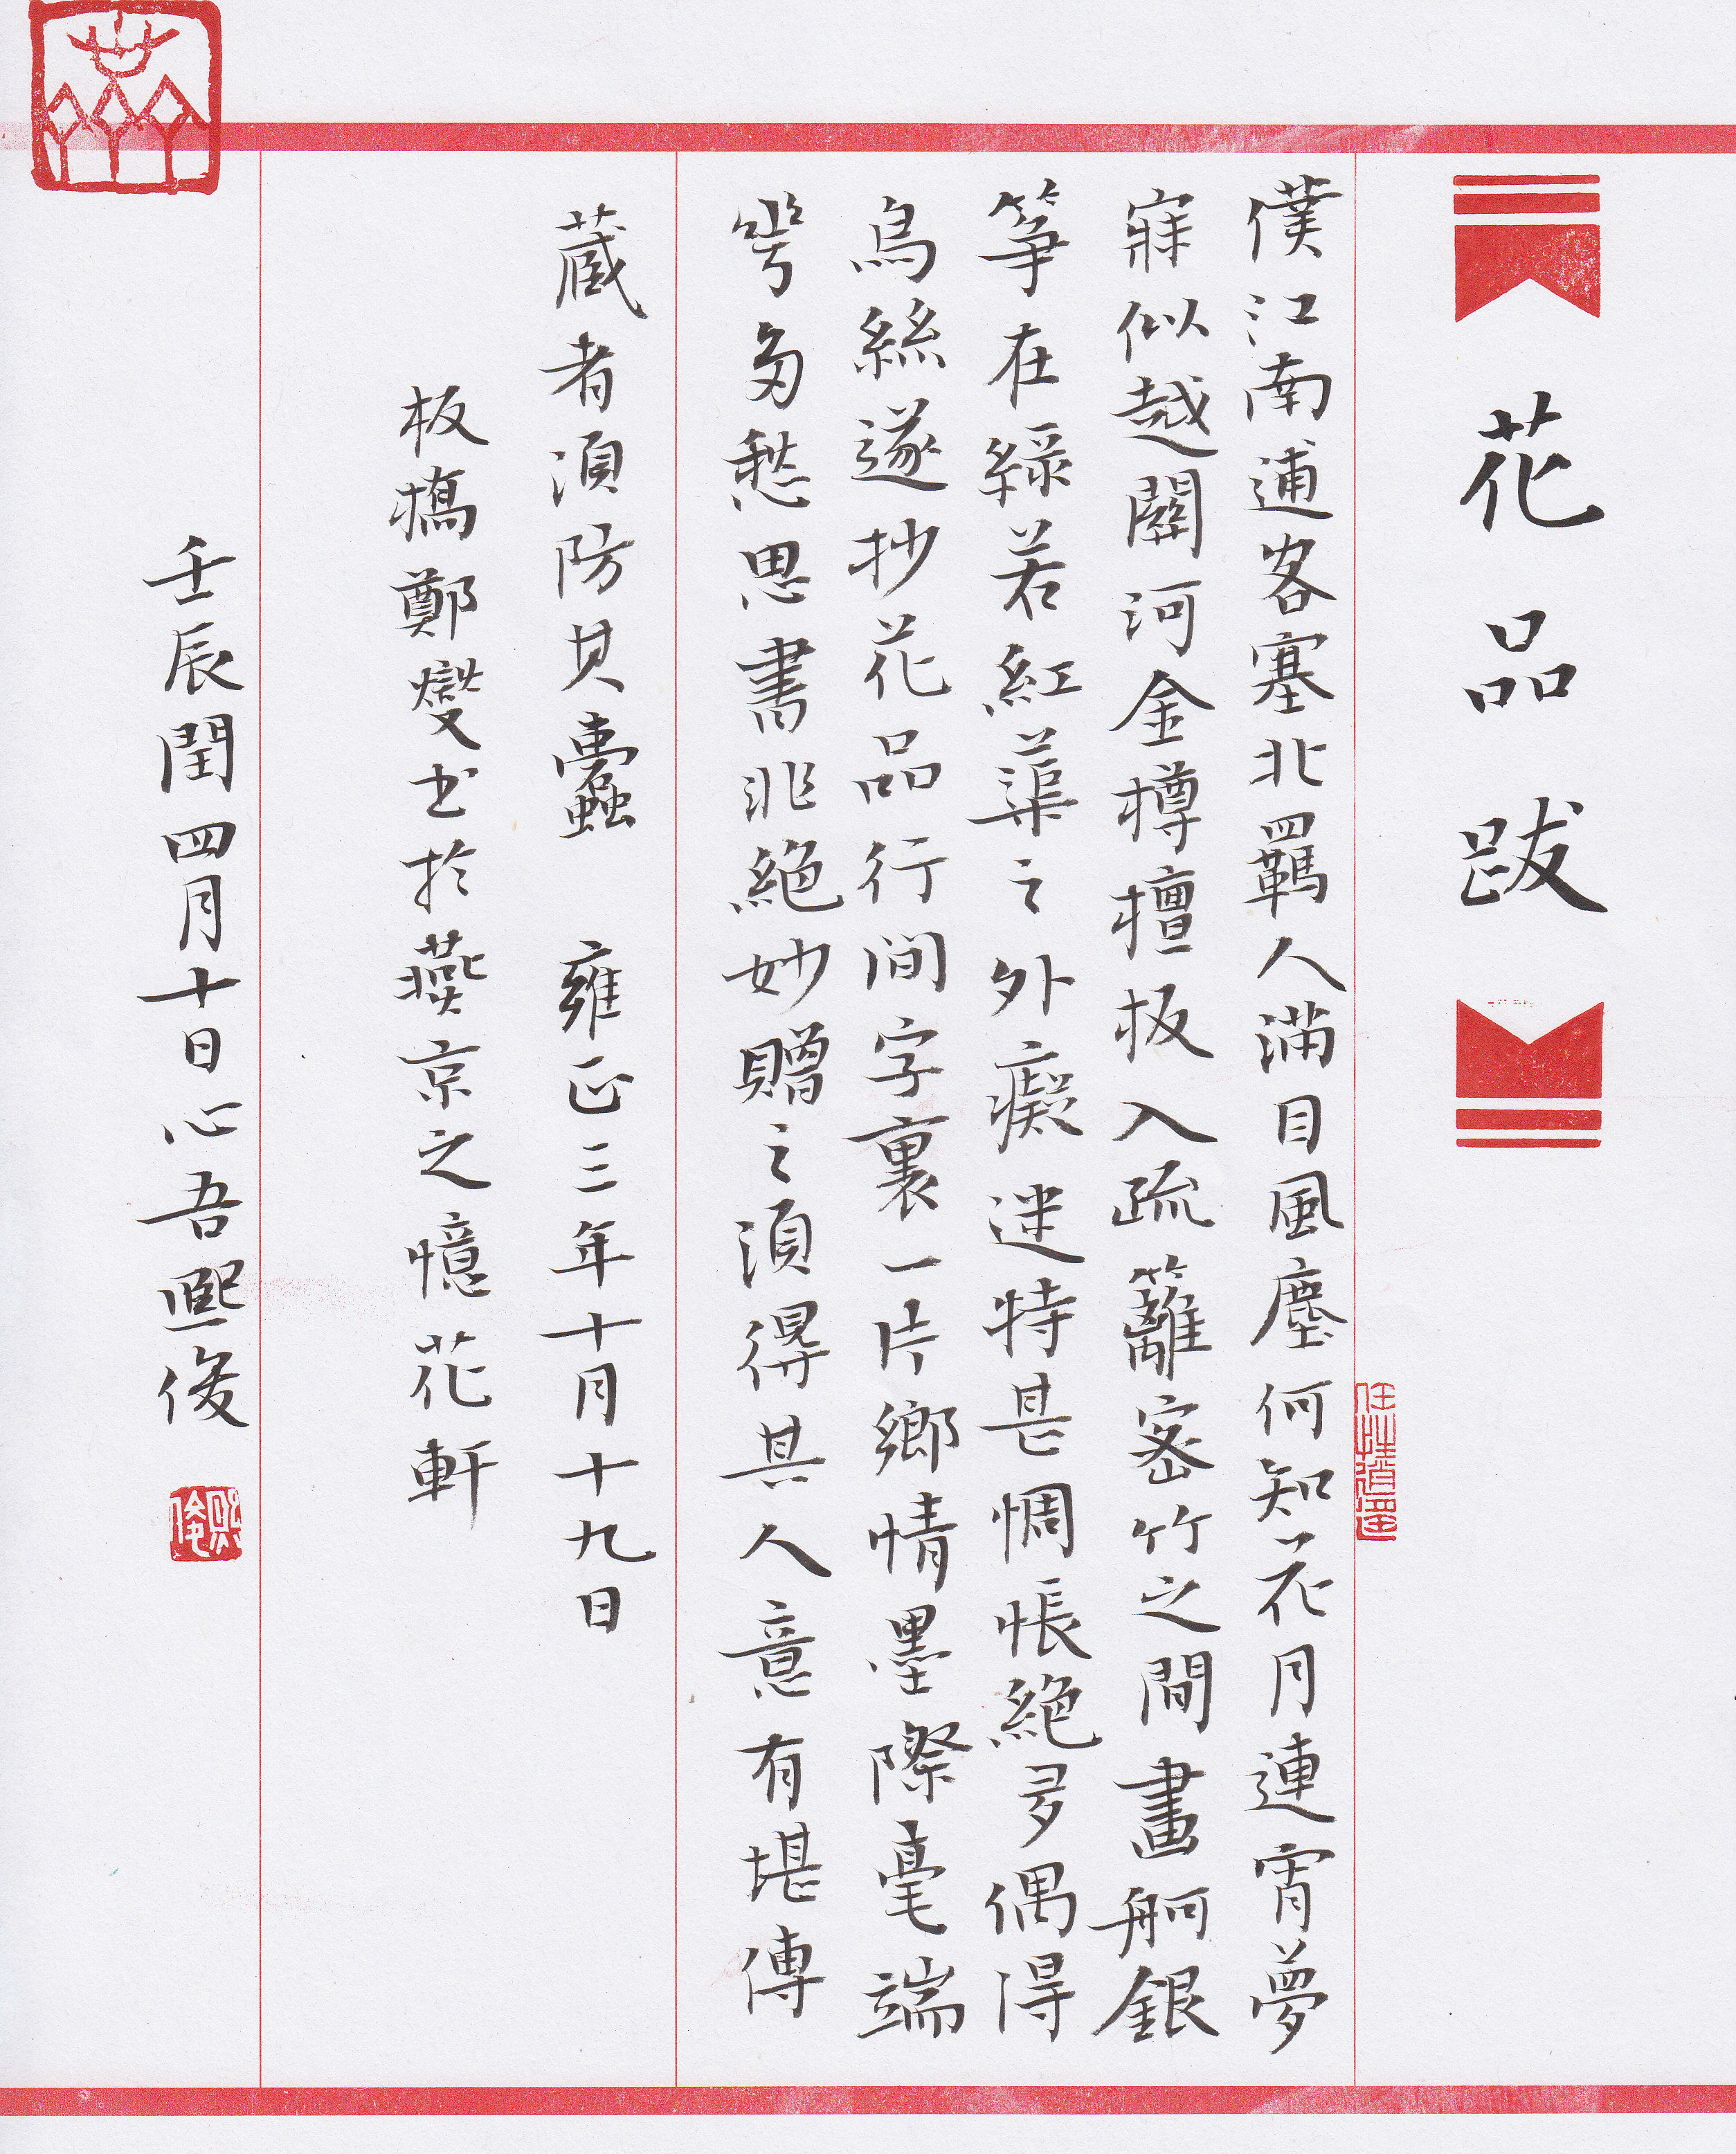 花品跋
僕江南逋客塞北羈人滿目風塵何知花月連宵夢
寐似越關河金樽檀板入疏籬密竹之間畫舸銀
箏在綠若紅蕖之外癡迷特甚惆悵絕多偶得
烏絲遂抄花品行間字裏一片鄉情墨際毫端
幾多愁思書非絕妙贈之須得其人意有堪傳
藏者須防其蠹 雍正三年十月十九日
板橋鄭燮书於燕京之憶花軒
壬辰閏四月十日心吾熙俊
熙俊